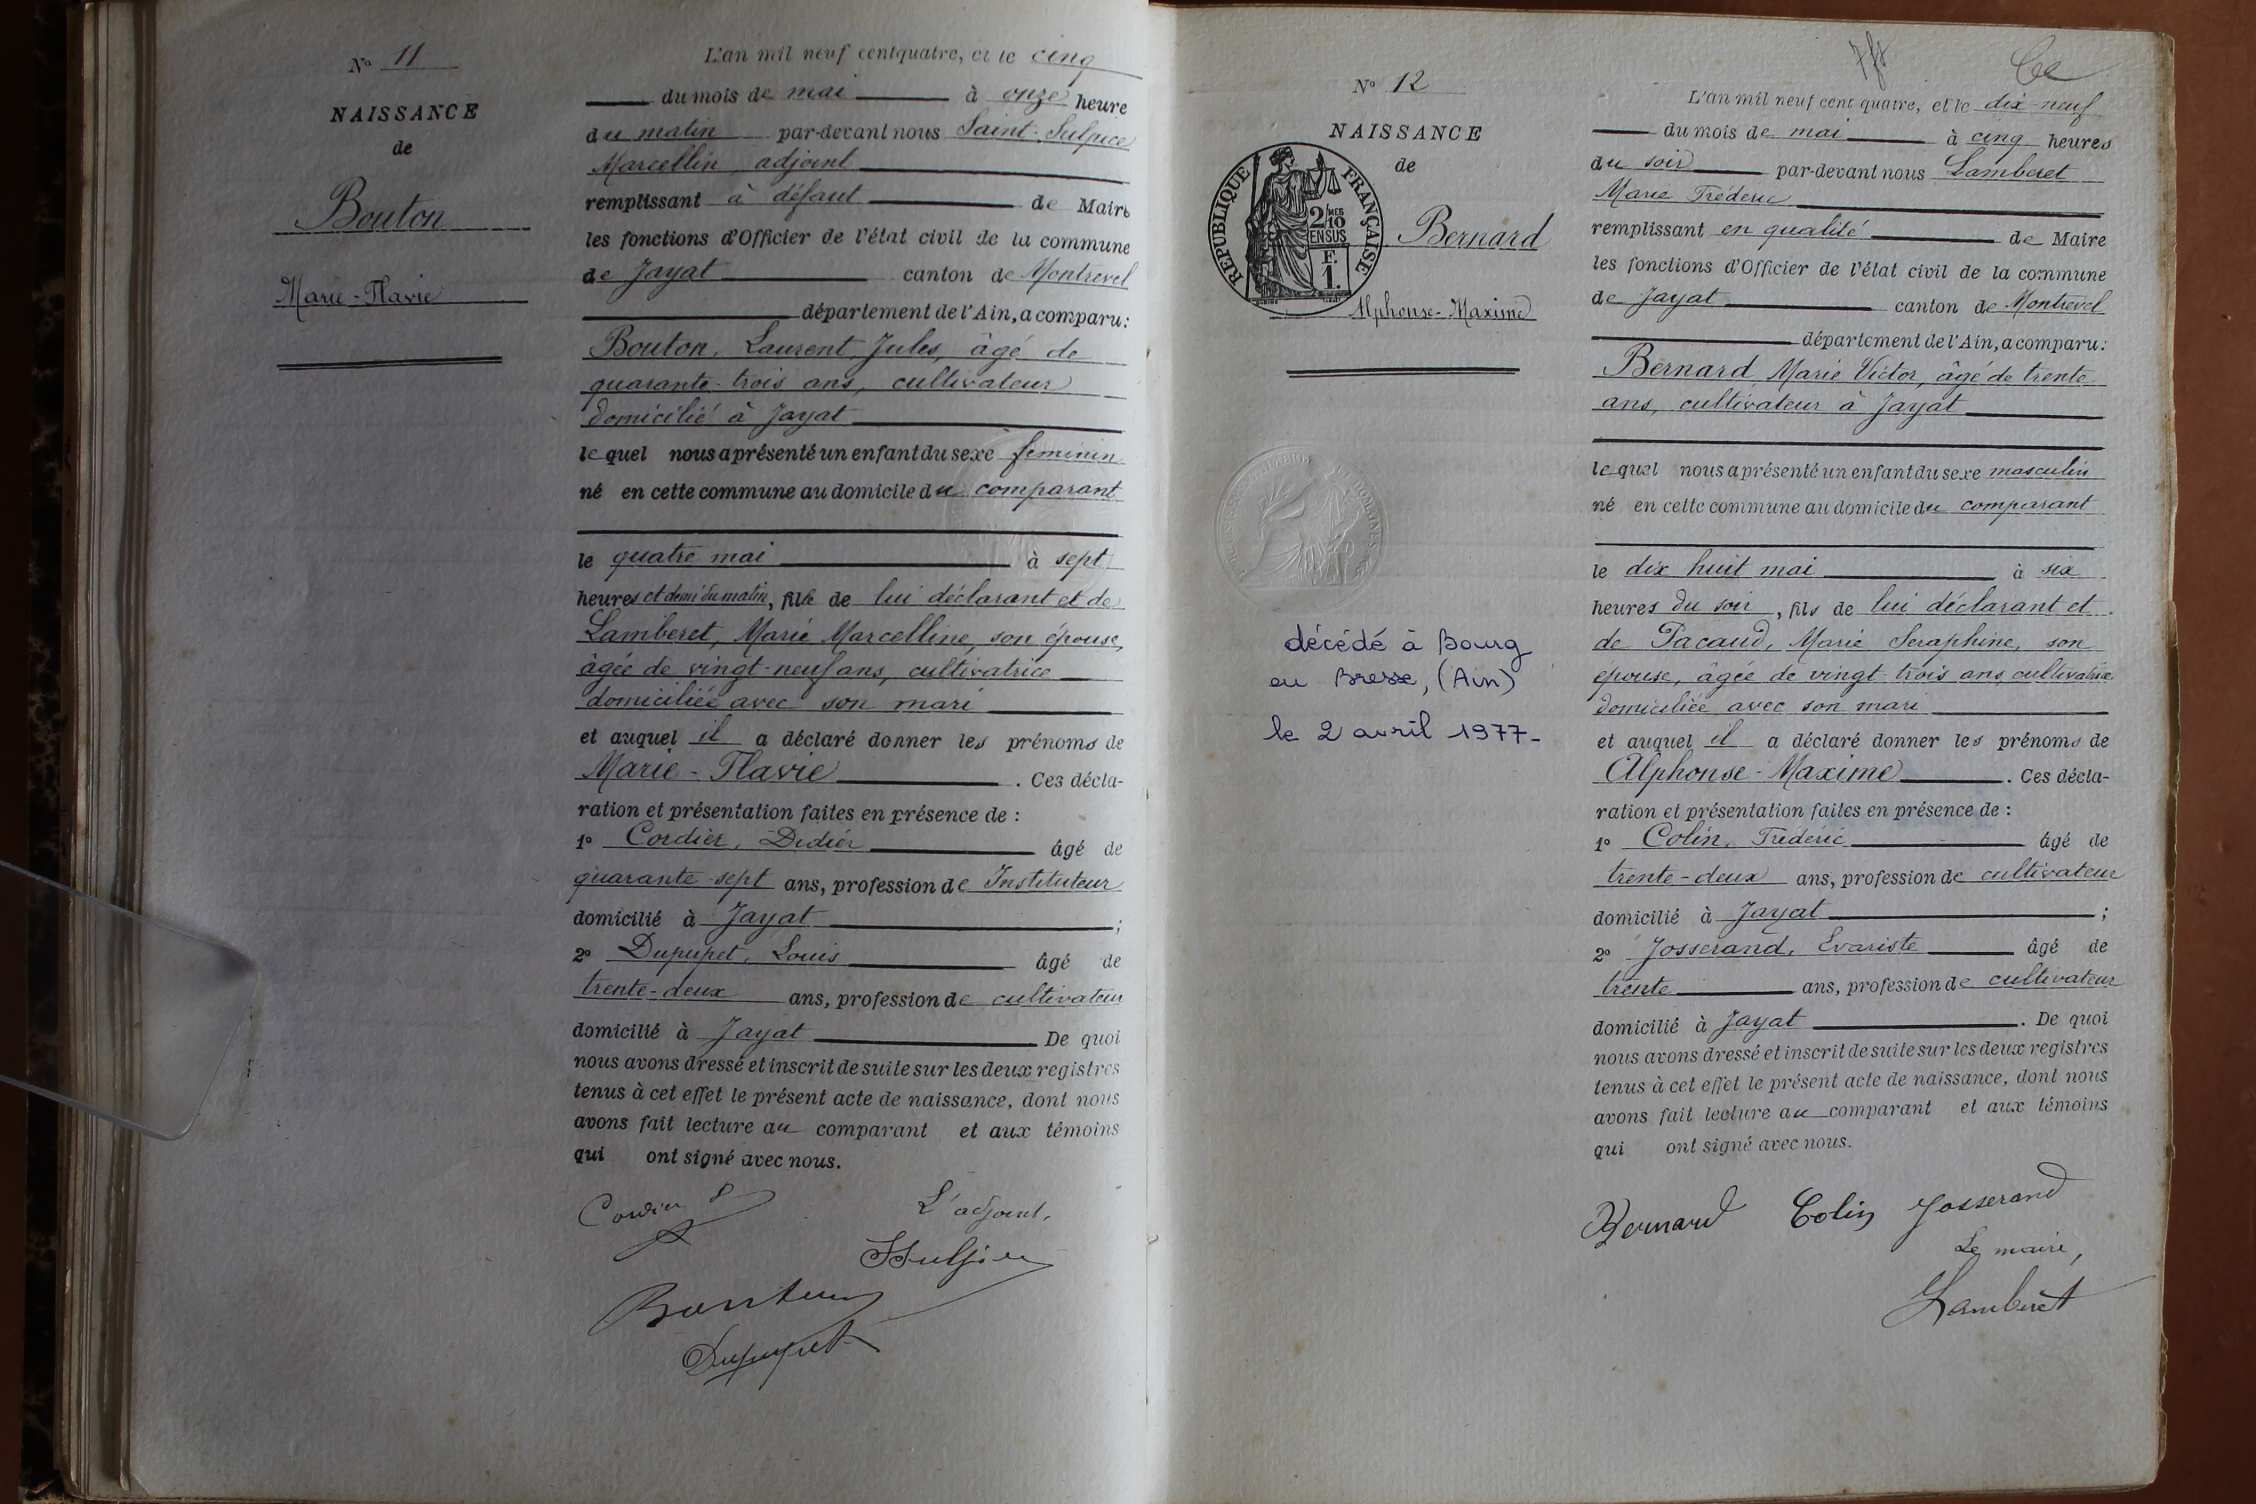 N° 11
NAISSANCE
de
Bouton
Marie-Flavie
L'an mil neuf cent quatre, et le cinq
du mois de mai à onze heure
du matin par-devant nous Saint-Sulpice
Marcellin, adjoint
remplissant à défaut de Maire
les fonctions d'Officier de l'état civil de la commune
de Jayat canton de Montrevel
département de l'Ain, a comparu:
Bouton, Laurent Jules, âgé de
quarante-trois ans, cultivateur
domicilié à Jayat
lequel nous a présenté un enfant du sexe feminin
né en cette commune au domicile du comparant
le quatre mai à sept
heures et demi du matin, fille de lui déclarant et de
Lamberet, Marie Marcelline, son épouse,
âgée de vingt-neuf ans, cultivatrice
domiciliée avec son mari
et auquel il a déclaré donner les prénoms de
Marie-Flavie. Ces décla-
ration et présentation faites en présence de :
1° Cordier, Didier âgé de
quarante-sept ans, profession de Instituteur
domicilié à Jayat ;
2° Dupupet, Louis âgé de
trente-deux ans, profession de cultivateur
domicilié à Jayat De quoi
nous avons dressé et inscrit de suite sur les deux registres
tenus à cet effet le présent acte de naissance, dont nous
avons fait lecture au comparant et aux témoins
qui ont signé avec nous.
Cordier
L'adjoint,
Bouton
Dupupet
N° 12
NAISSANCE
de
REPUBLIQUE FRANÇAISE
2/MES
10
EN SUS
F.
1.
Bernard
Alphonse-Maxime
décédé à Bourg
en Bresse, (Ain)
le 2 avril 1977-
L'an mil neuf cent quatre, et le dix-neuf
du mois de mai à cinq heures
du soir par-devant nous Lamberet
Marie Fréderic
remplissant en qualité de Maire
les fonctions d'Officier de l'état civil de la commune
de Jayat canton de Montrevel
département de l'Ain, a comparu:
Bernard, Marie Victor, âgé de trente
ans, cultivateur à Jayat
lequel nous a présenté un enfant du sexe masculin
né en cette commune au domicile du comparant
le dix huit mai à six
heures du soir, fils de lui déclarant et
de Pacaud, Marie Seraphine, son
épouse, âgée de vingt-trois ans, cultivatrice
domiciliée avec son mari
et auquel il a déclaré donner les prénoms de
Alphonse-Maxime. Ces décla-
ration et présentation faites en présence de :
1° Colin, Fréderic âgé de
trente-deux ans, profession de cultivateur
domicilié à Jayat ;
2° Josserand, Evariste âgé de
trente ans, profession de cultivateur
domicilié à Jayat. De quoi
nous avons dressé et inscrit de suite sur les deux registres
tenus à cet effet le présent acte de naissance, dont nous
avons fait lecture au comparant et aux témoins
qui ont signé avec nous.
Bernard Colin Josserand
Le maire,
Lamberet